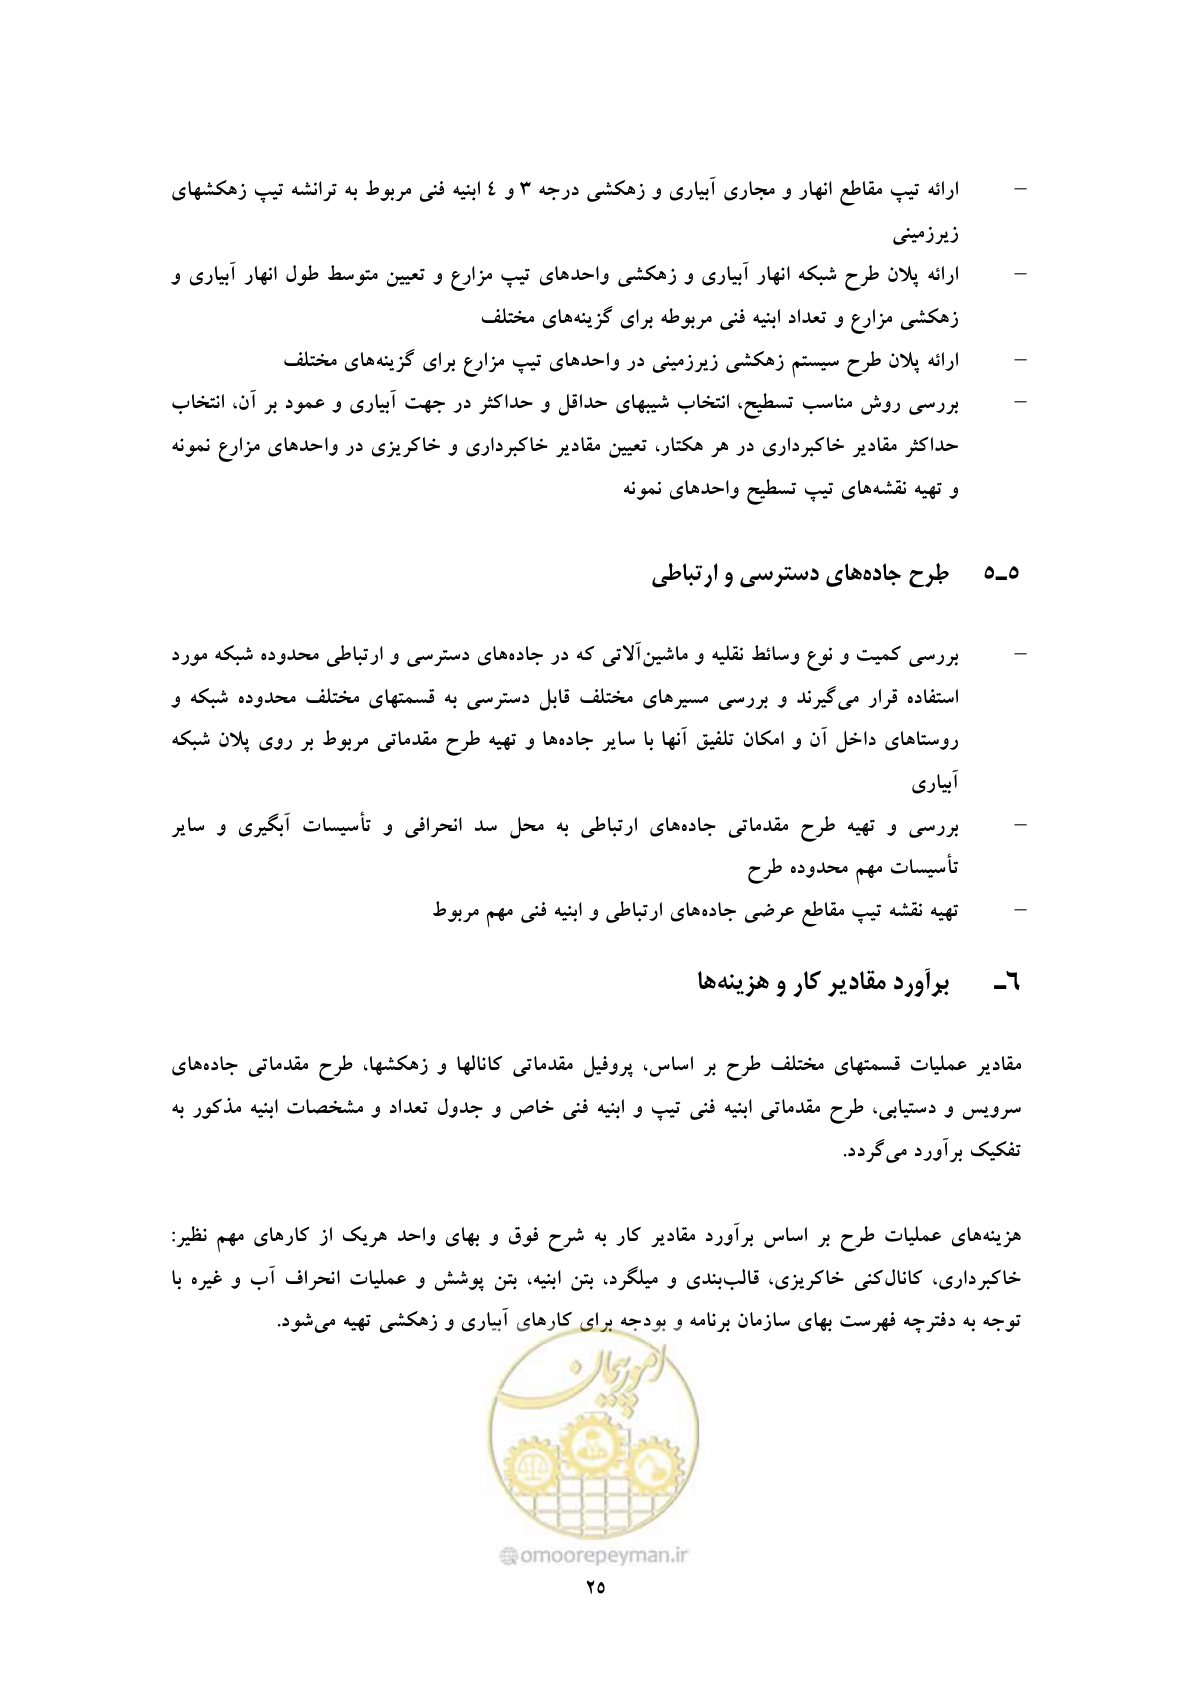 – ارائه تیپ مقاطع انهار و مجاری آبیاری و زهکشی درجه ۳ و ٤ ابنیه فنی مربوط به ترانشه تیپ زهکشهای
زیرزمینی
– ارائه پلان طرح شبکه انهار آبیاری و زهکشی واحدهای تیپ مزارع و تعیین متوسط طول انهار آبیاری و
زهکشی مزارع و تعداد ابنیه فنی مربوطه برای گزینه‌های مختلف
– ارائه پلان طرح سیستم زهکشی زیرزمینی در واحدهای تیپ مزارع برای گزینه‌های مختلف
– بررسی روش مناسب تسطیح، انتخاب شیبهای حداقل و حداکثر در جهت آبیاری و عمود بر آن، انتخاب
حداکثر مقادیر خاکبرداری در هر هکتار، تعیین مقادیر خاکبرداری و خاکریزی در واحدهای مزارع نمونه
و تهیه نقشه‌های تیپ تسطیح واحدهای نمونه
٥ـ٥ طرح جاده‌های دسترسی و ارتباطی
– بررسی کمیت و نوع وسائط نقلیه و ماشین‌آلاتی که در جاده‌های دسترسی و ارتباطی محدوده شبکه مورد
استفاده قرار می‌گیرند و بررسی مسیرهای مختلف قابل دسترسی به قسمتهای مختلف محدوده شبکه و
روستاهای داخل آن و امکان تلفیق آنها با سایر جاده‌ها و تهیه طرح مقدماتی مربوط بر روی پلان شبکه
آبیاری
– بررسی و تهیه طرح مقدماتی جاده‌های ارتباطی به محل سد انحرافی و تأسیسات آبگیری و سایر
تأسیسات مهم محدوده طرح
– تهیه نقشه تیپ مقاطع عرضی جاده‌های ارتباطی و ابنیه فنی مهم مربوط
٦ـ برآورد مقادیر کار و هزینه‌ها
مقادیر عملیات قسمتهای مختلف طرح بر اساس، پروفیل مقدماتی کانالها و زهکشها، طرح مقدماتی جاده‌های
سرویس و دستیابی، طرح مقدماتی ابنیه فنی تیپ و ابنیه فنی خاص و جدول تعداد و مشخصات ابنیه مذکور به
تفکیک برآورد می‌گردد.
هزینه‌های عملیات طرح بر اساس برآورد مقادیر کار به شرح فوق و بهای واحد هریک از کارهای مهم نظیر:
خاکبرداری، کانال‌کنی خاکریزی، قالب‌بندی و میلگرد، بتن ابنیه، بتن پوشش و عملیات انحراف آب و غیره با
توجه به دفترچه فهرست بهای سازمان برنامه و بودجه برای کارهای آبیاری و زهکشی تهیه می‌شود.
امور پیمان
omoorepeyman.ir
٢٥